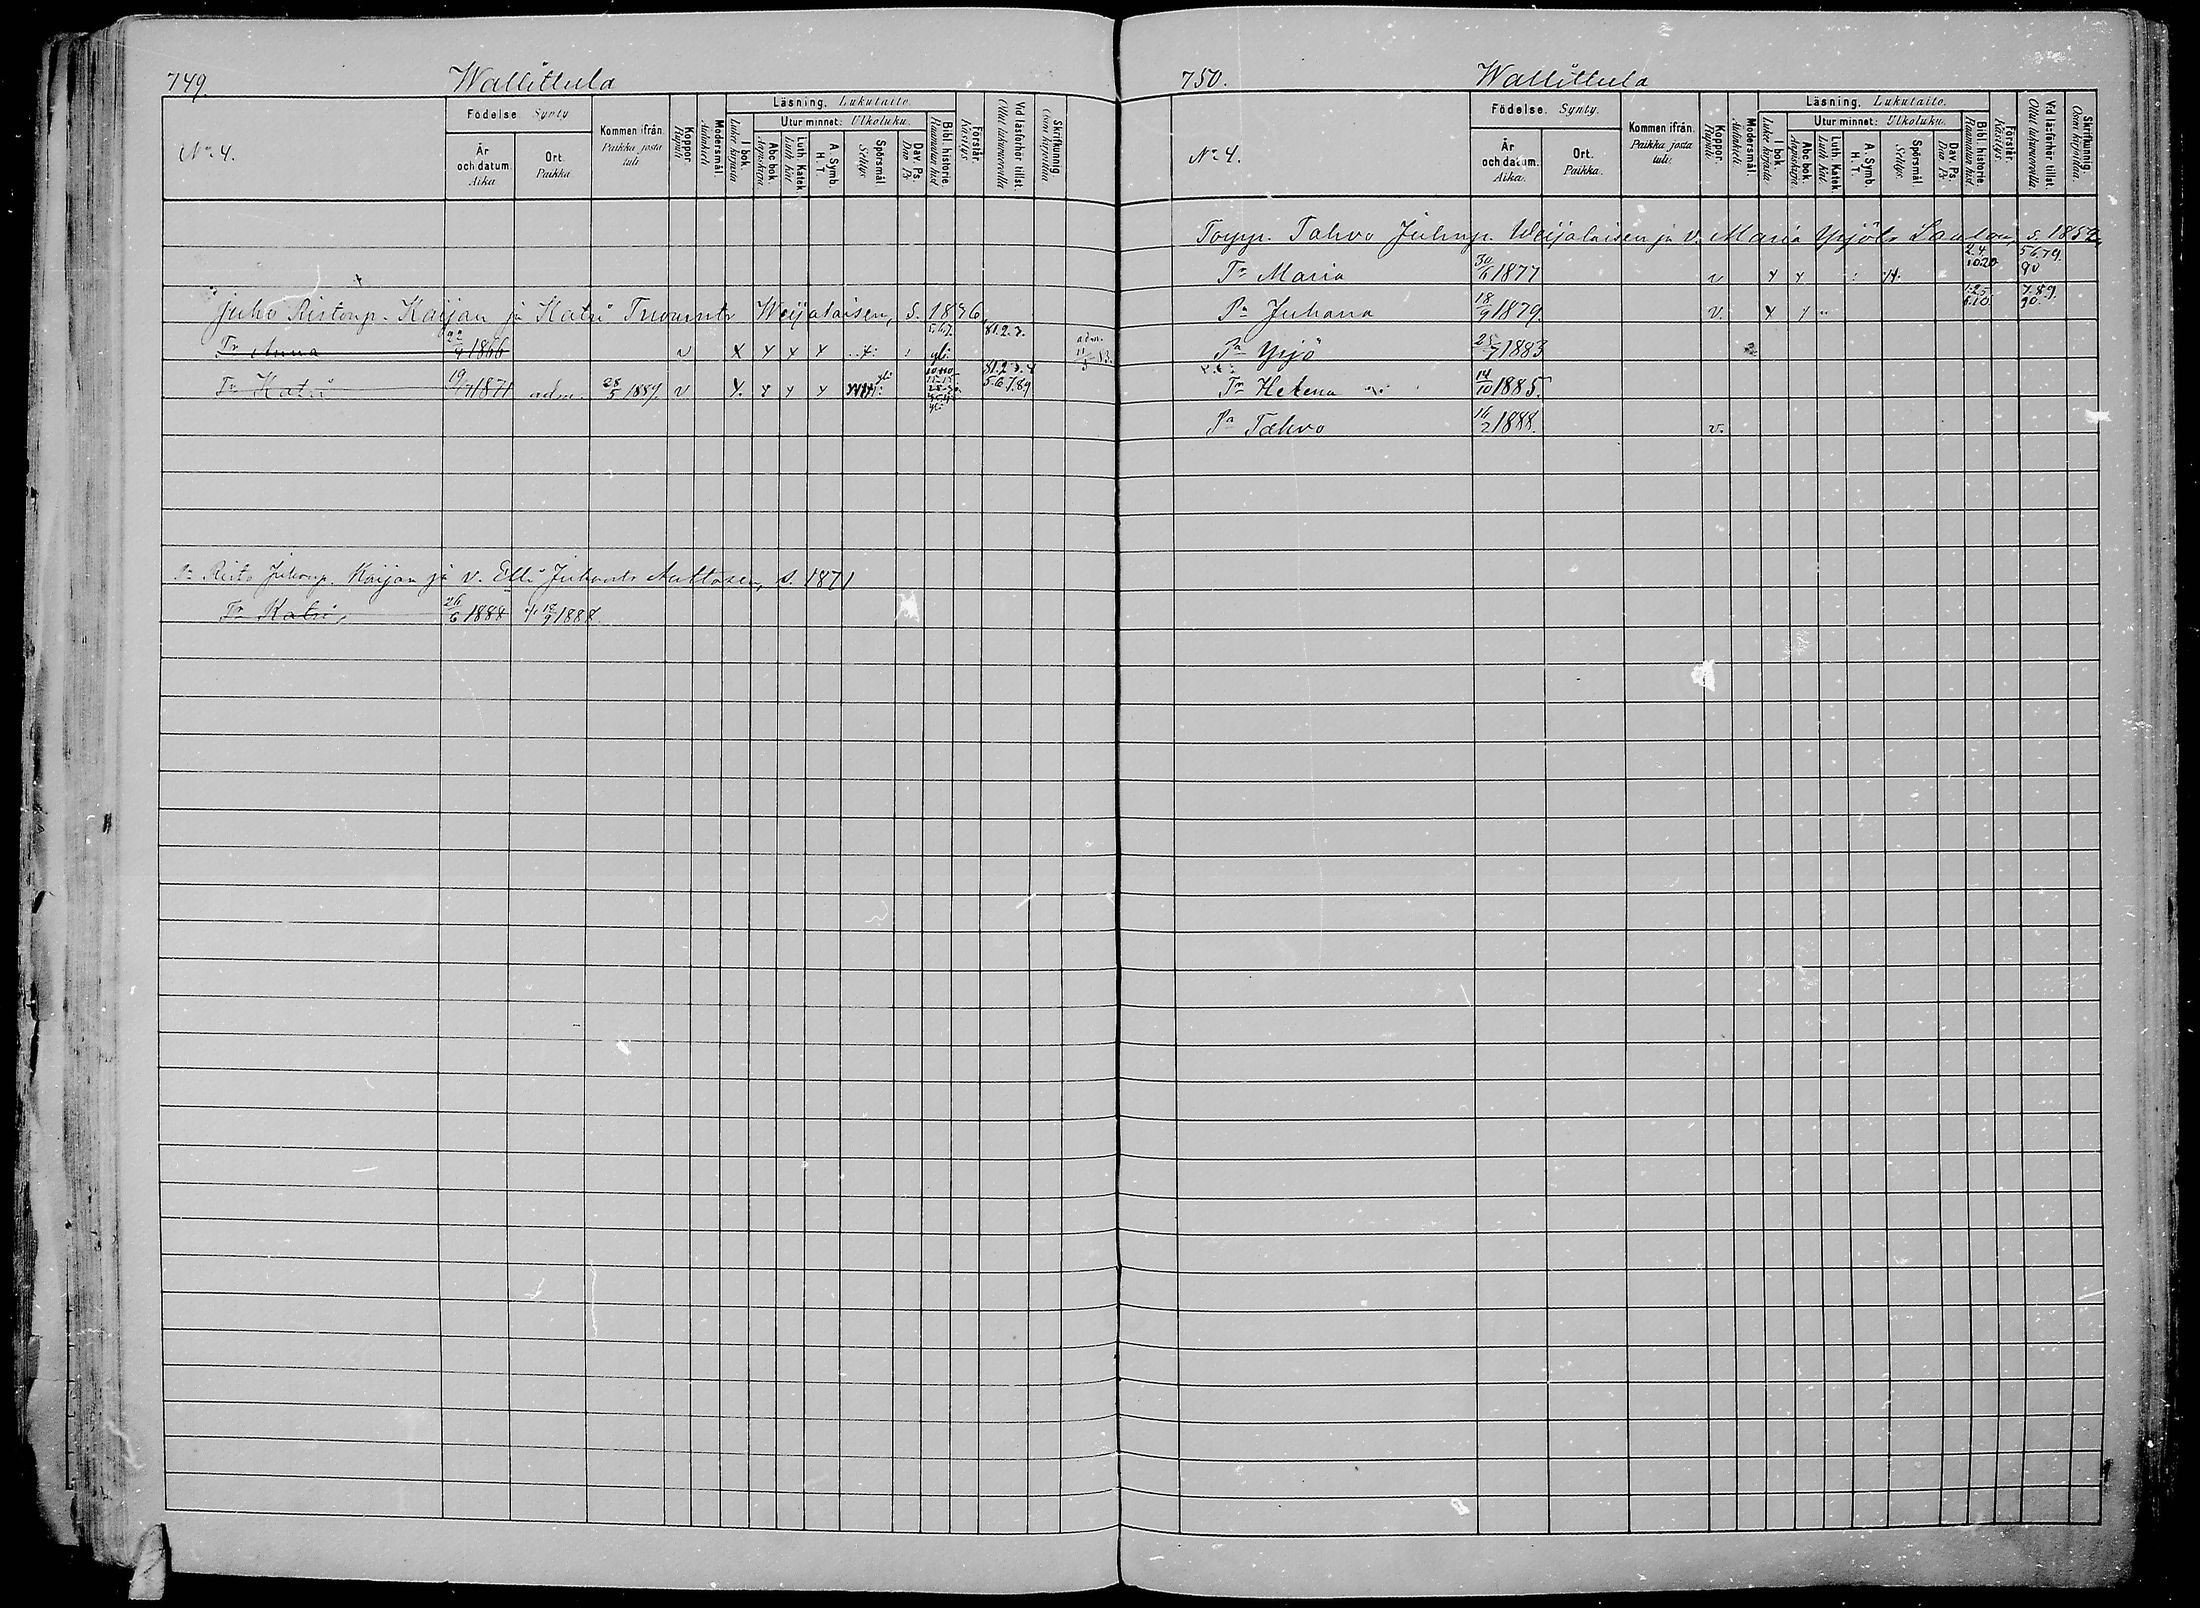 749. Wallittula
No 4.
Födelse. Synty
År och datum. Aika
Ort. Paikka
Kommen ifrån. Paikka josta tuli
Koppor. Rupuli
Modersmål. Äidinkieli
Läsning. Lukutaito.
I bok. Lukee kirjasta
Utur minnet: Ulkoluku.
Abc bok. Aapiskirja
Luth. Katek. Luth. Kat.
A. Symb. H. T.
Spörsmål. Selitys
Dav. Ps. Dav. Ps.
Bibl. historie. Raamatun hist.
Förstår. Käsitys.
Vid läsförhör tillst. Ollut lukuvuoroilla
Skrifkunnig. Osaa kirjoittaa
Juho Ristonp. Kaijan ja Katri Tuomantr Weijalaisen, s. 1846,
Tr Anna 22/4 1866 v x x x x 5.6.7. yli: 81.2.3. adm. 11/5 83.
Tr Katri 19/7 1871 adm. 28/5 1889 v x x x x yli: 81.2.3.4 5.6.7.89
Pa Risto Juhonp. Kaijan ja v. Elli Juhontr Auttosen, s. 1871
Tr Katri, 26/6 1888 † 18/9 1888.
750. Wallittula
No 4.
Födelse. Synty.
År och datum. Aika.
Ort. Paikka.
Kommen ifrån. Paikka josta tuli.
Koppor. Rupuli.
Modersmål. Äidinkieli
Läsning. Lukutaito.
I bok. Lukee kirjasta
Utur minnet: Ulkoluku.
Abc bok. Aapiskirja
Luth. Katek. Luth. Kat.
A. Symb. H. T.
Spörsmål. Selitys.
Dav. Ps. Dav. Ps.
Bibl. historie. Raamatun hist.
Förstår. Käsitys.
Vid läsförhör tillst. Ollut lukuvuoroilla
Skrifkunnig. Osaa kirjoittaa.
Torpp. Tahvo Juhonp. Weijalaisen ja v. Maria Yrjöltr, s. 1852,
Tr Maria 30/6 1877 v x x : 2.4. 10.20 5.6.7.9. 90
Pa Juhana 18/9 1879. v. x x .. 1.2.5. 6.10. 7.8.9. 90.
Pa Yrjö 25/7 1883
Tr Helena 14/10 1885.
Pa Tahvo 16/2 1888. v.